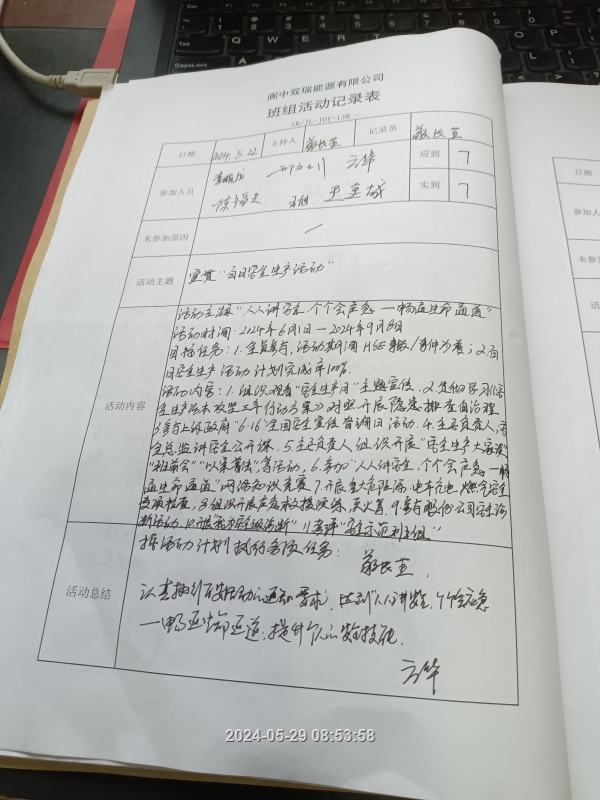 阆中双瑞能源有限公司
班组活动记录表
SR/JL-JDY-138-
日期 2024.5.22 主持人 记录员
参加人员 应到 7
实到 7
未参加原因 /
活动主题 宣贯"百日安全生产活动"
活动主题"人人讲安全、个个会应急—畅通生命通道"
活动时间:2024年6月1日—2024年9月8日
目标任务:1.全员参与,活动期间HSE事故/事件为零;2.百
日安全生产活动计划完成率100%.
活动内容 活动内容:1.组织观看"安全生产月"主题宣传、2.贯彻学习《安
全生产治本攻坚三年行动方案》对照开展隐患排查自治理
3.参与上级政府"6·16"全国安全宣传咨询日活动、4.主要负责人,安
全总监讲安全公开课、5.主要负责人组织开展"安全生产大家谈"
"班前会""以案普法"等活动、6.参加"人人讲安全、个个会应急—畅
通生命通道"网络知识竞赛、7.开展重大危险源、电车充电、燃气安全
专项检查,8.组织开展应急救援演练、灭火等、9.参与股份公司安全诊
断活动、10.开展 11.考评"安全示范班组"
活动总结 按活动计划执行各项任务:
认真 百日活动 要求,达到人人讲安全,个个会应急
一畅通生命通道,提升个人的安全技能.
2024-05-29 08:53:58